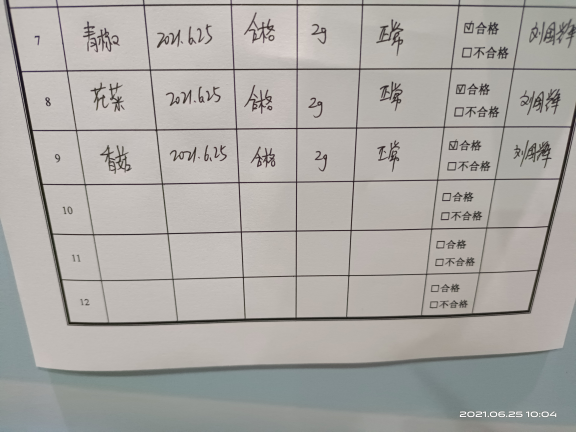 7 青椒 2021.6.25 合格 2g 正常 ☑合格 刘国辉
□不合格
8 花菜 2021.6.25 合格 2g 正常 ☑合格 刘国辉
□不合格
9 香菇 2021.6.25 合格 2g 正常 ☑合格 刘国辉
□不合格
10 □合格
□不合格
11 □合格
□不合格
12 □合格
□不合格
2021.06.25 10:04